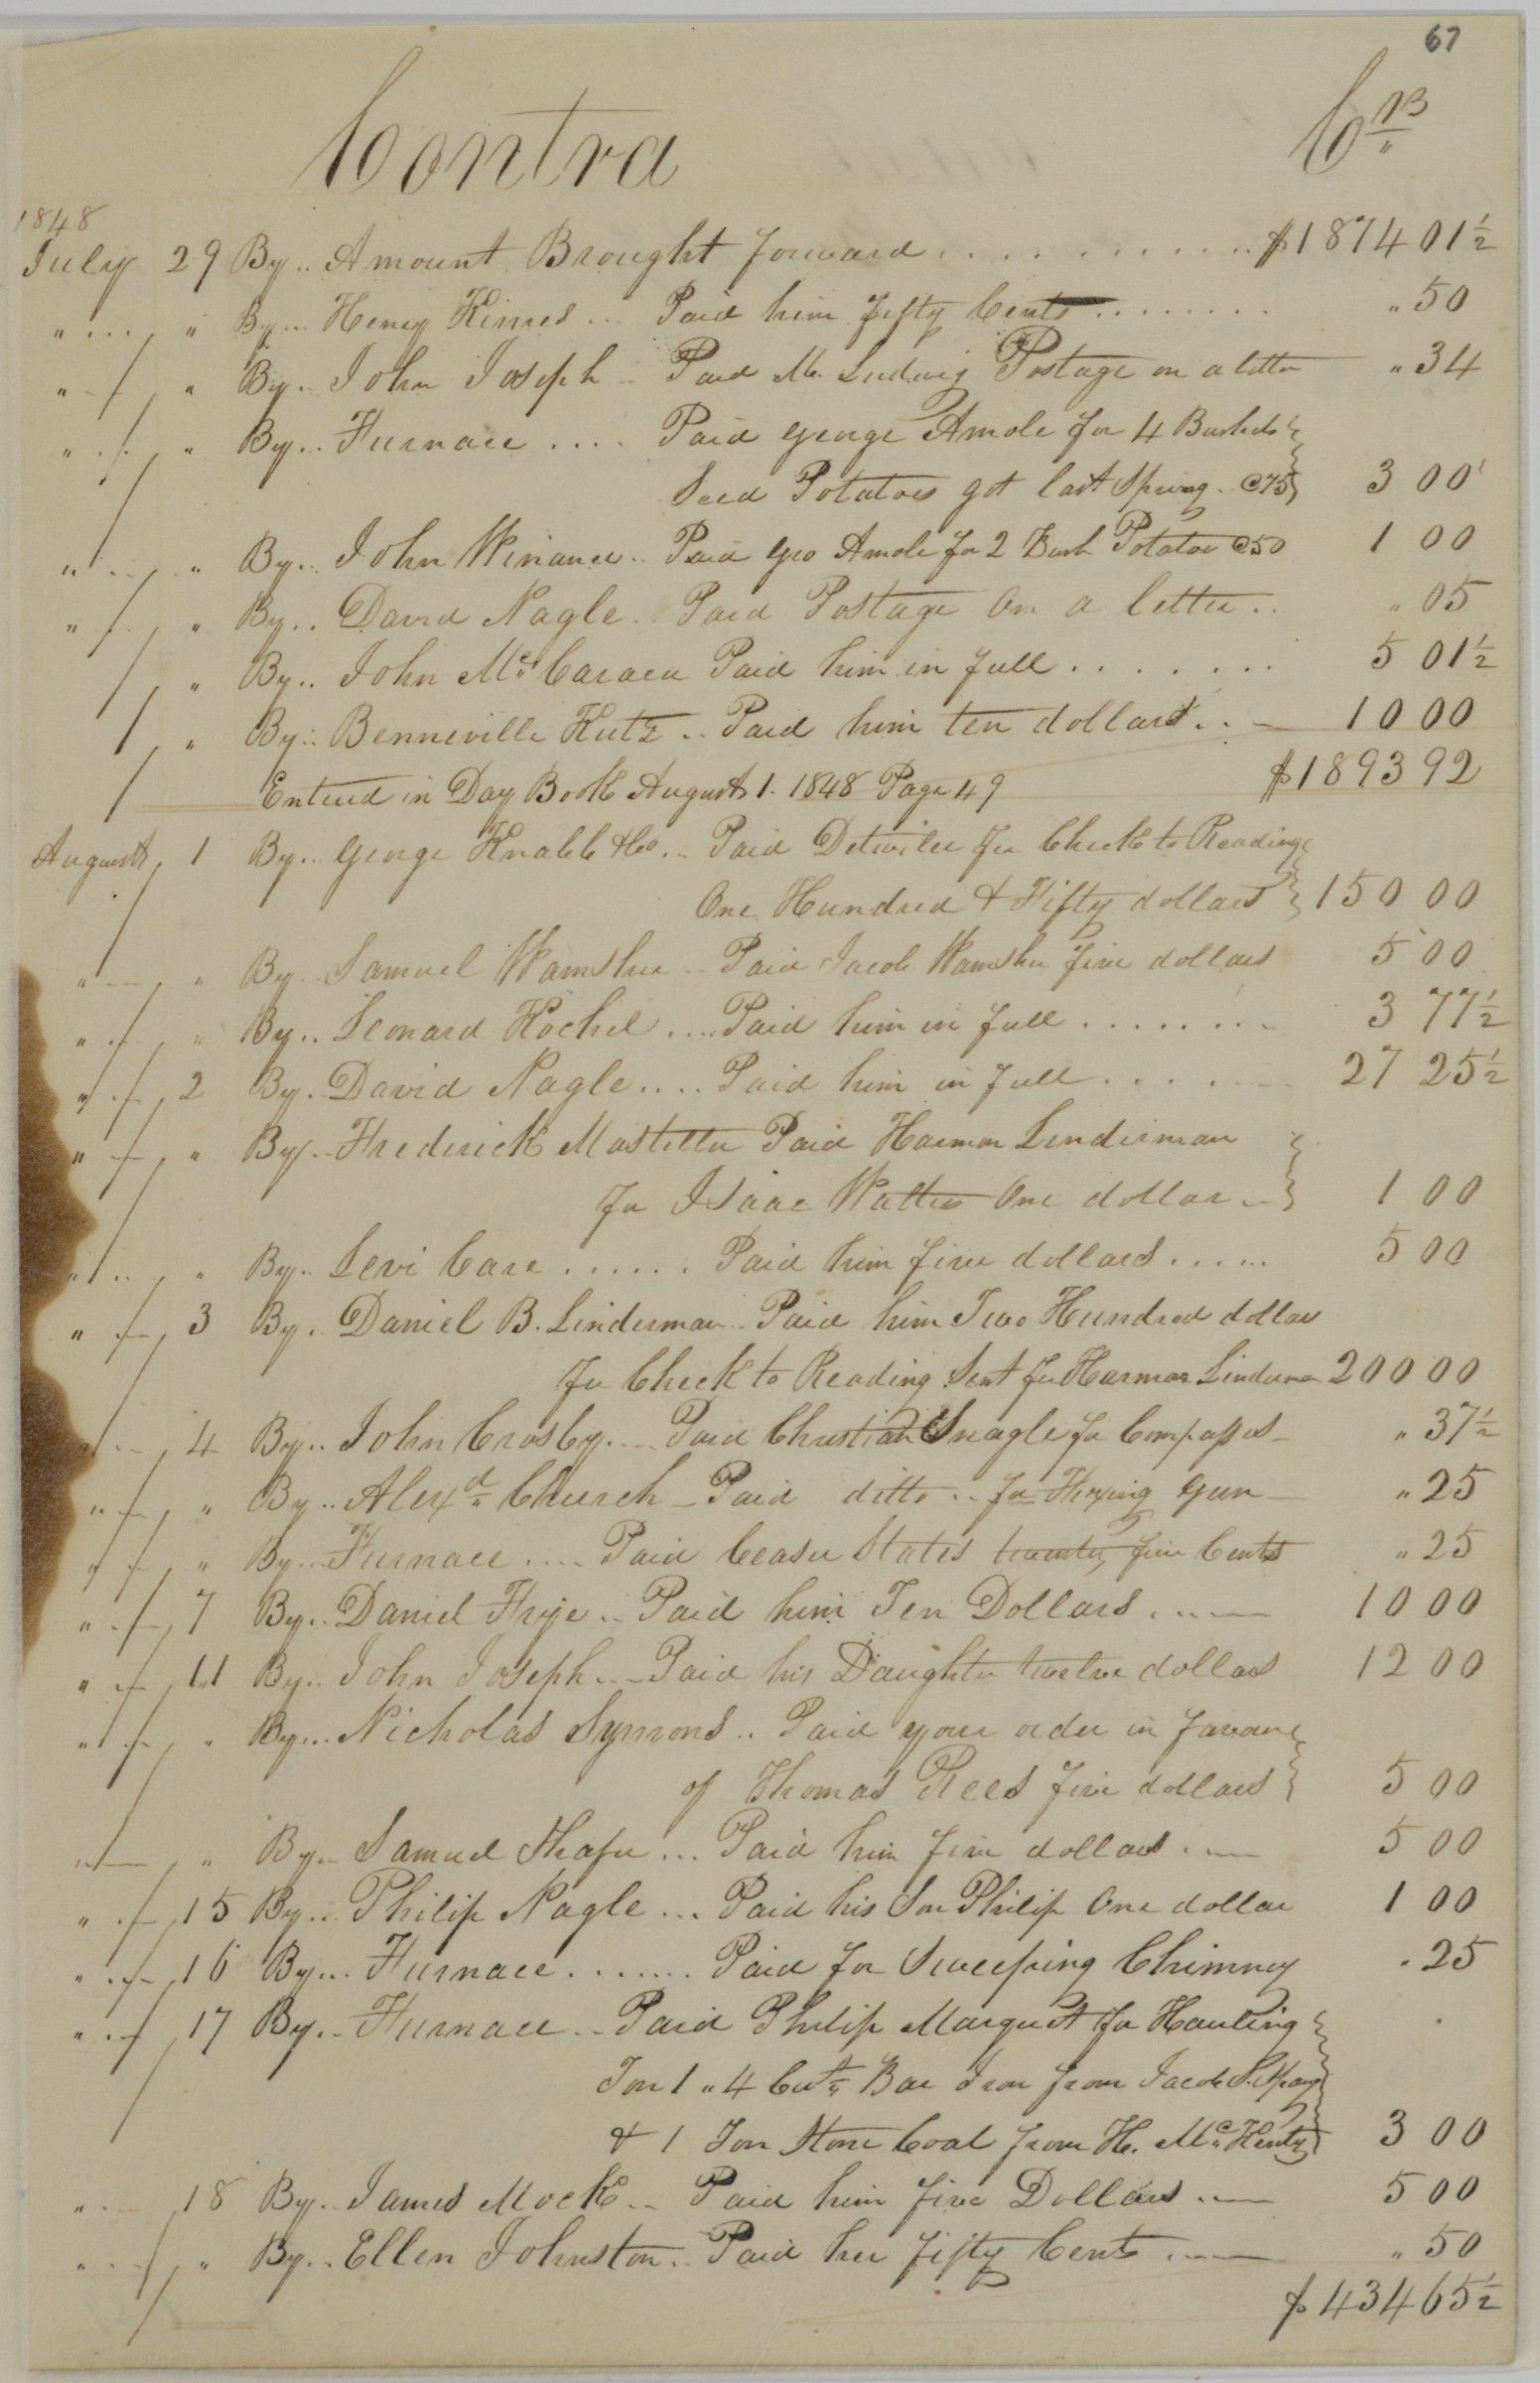 67
Contra Crs
1848
July 29 By.. Amount Brought forward ............ $1874 01½
" .... " By... Henry Kimes ... Paid him fifty Cents ........ " 50
" - " By.. John Joseph .. Paid M. Ludwig Postage on a letter " 34
" .. " By.. Furnace .... Paid George Amole for 4 Bushels
Seed Potatoes got last Spring .. @75 3 00
" .. " By.. John Winance .. Paid Geo Amole for 2 Bush Potatoe @50 1 00
" .. " By.. David Nagle .. Paid Postage On a letter .. " 05
" By.. John Mc Paid him in full ........ 5 01½
" By.. Benneville Kutz .. Paid him ten dollars .. - 10 00
Entered in Day Book August 1. 1848 Page 49 $1893 92
August 1 By... George Knabb & Co. .. Paid Detwiler for Check to Reading
One Hundred & Fifty dollars 150 00
" -- " By.. Samuel Wamsher .. Paid Jacob Wamsher five dollars 5 00
" .. " By.. Leonard Kochel .... Paid him in full ........ 3 77½
" .. 2 By.. David Nagle .... Paid him in full ........ 27 25½
" - " By.. Frederick Mosteller Paid Harmon Linderman
for Isaac Walters One dollar .. 1 00
" .. " By.. Levi Care ...... Paid him five dollars ...... 5 00
" - 3 By.. Daniel B. Linderman .. Paid him Two Hundred dollar
for Check to Reading Sent for Harmon Linderman 200 00
" -- 4 By.. John Crosby .... Paid Christian Snagle for Compasses - " 37½
" - " By.. Alexd. Church - Paid ditto .. for Fixing Gun - " 25
" - " By... Furnace .... Paid Ceaser States twenty five Cents " 25
" - 7 By.. Daniel Frye .. Paid him Ten Dollars .... 10 00
" - 11 By.. John Joseph ... Paid his Daughter twelve dollars 12 00
" - " By... Nicholas Symons .. Paid your order in favour
of Thomas Rees five dollars 5 00
" - " By.. Samuel Shafer ... Paid him five dollars .-- 5 00
" - 15 By... Philip Nagle ... Paid his Son Philip One dollar 1 00
" - 16 By... Furnace ....... Paid for Sweeping Chimney " 25
" - 17 By.. Furnace .. Paid Philip Marquet for Hauling
Ton 1 " 4 Cwt. Bar Iron from Jacob
& 1 Ton Stone Coal from H. Mc Henty 3 00
" .. 18 By.. James Mock .. Paid him five Dollars .-- 5 00
" .. " By.. Ellen Johnston .. Paid her fifty Cents .-- " 50
$ 434 65½